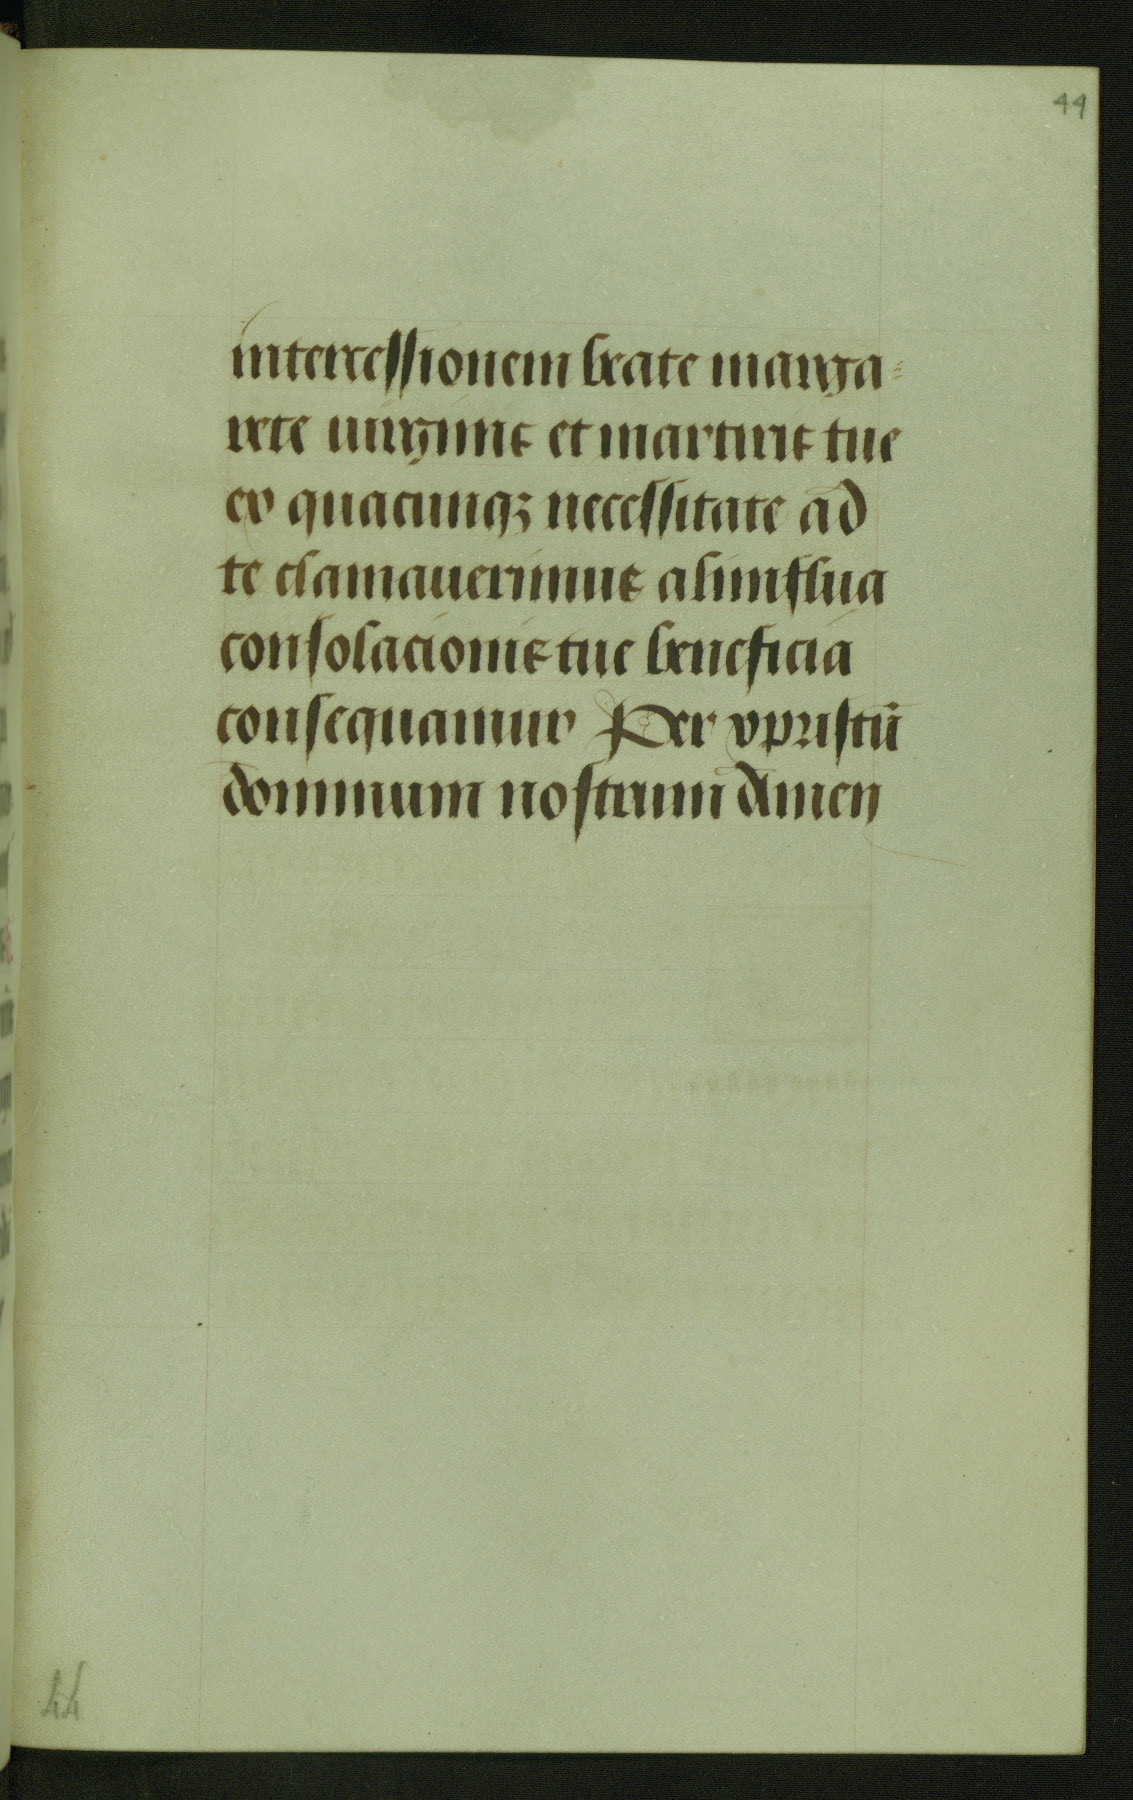 44
intercessionem beate marga=
rete uirginis et martiris tue
ex quacunqꝫ necessitate ad
te clamauerimus aliniflua
consolacionis tue beneficia
consequamur Per xpristū
dominum nostrum Amen
44